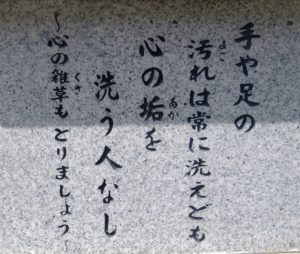 手や足の
汚れは常に洗えども
心の垢を
洗う人なし
～心の雑草もとりましょう～